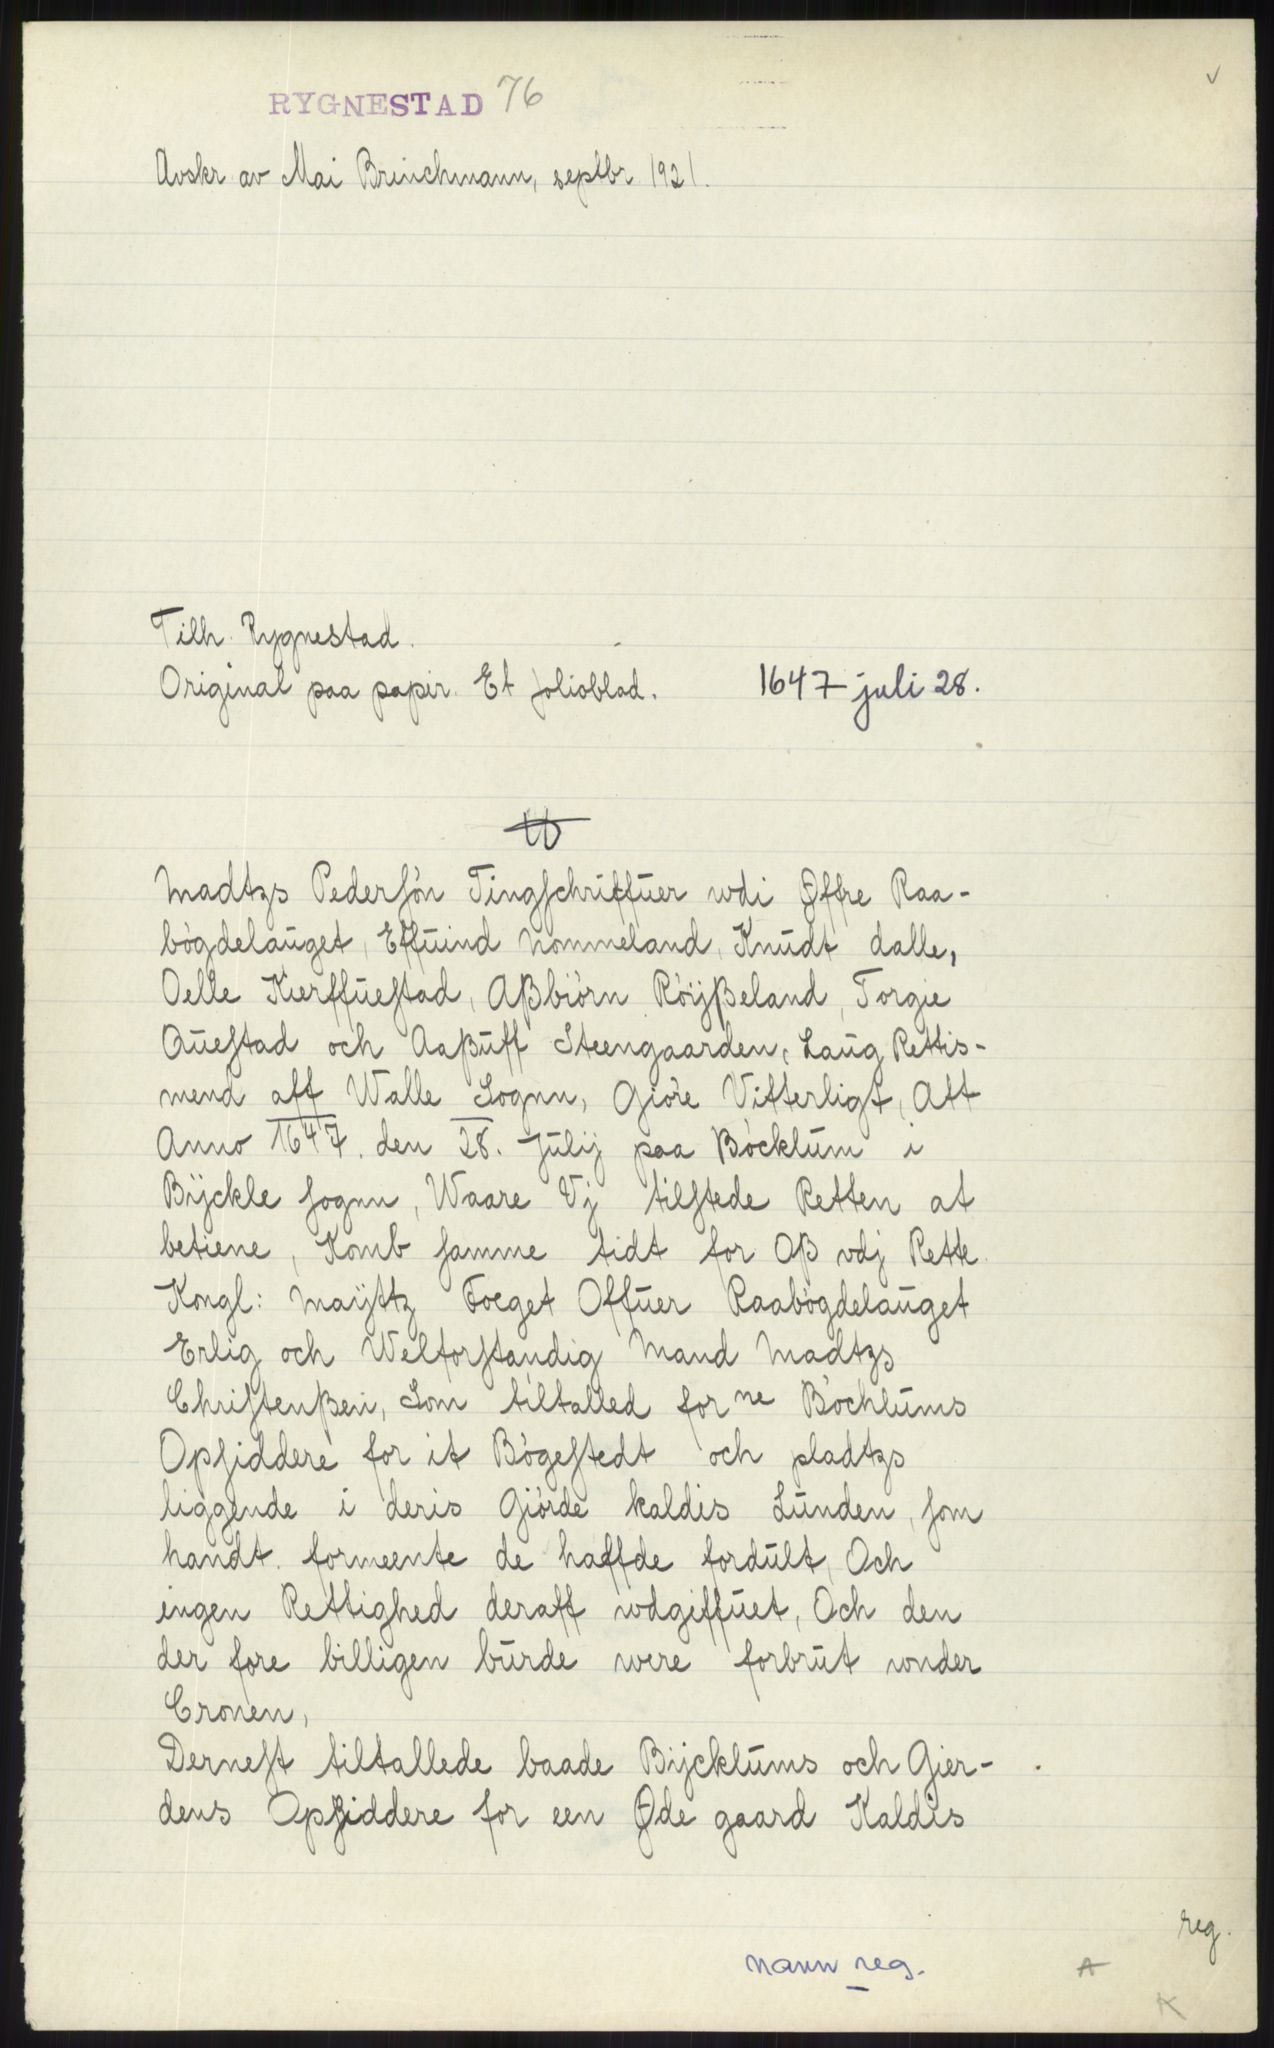 RYGNESTAD 76
Avskr av Mai Brinchmann, septbr 1921.
Tilh. Rygnestad.
Original paa papir. Et folioblad. 1647 juli 28.
Madtzs Pederſøn Tingſchriffuer wdi Øffre Raa-
bøgdelauget, Effuind Nommeland, Knudt dalle,
Oelle Kierffueſtad, Aßbiørn Røyßeland, Torgie
Queſtad och Aaßuff Steengaarden, Laug Rettis-
mend aff Walle Sognn, Giøre Vitterligt, Att
Anno 1647. den 28. Julij paa Bøcklum i
Bijckle ſognn, Waare Vj tilſtede Retten at
betiene, Komb ſamme tidt for Oß vdj Rette
Kongl: Maijttz Foeget Offuer Raabøgdelauget
Erlig och Welforſtandig Mand Madtzs
Chriſtenßen, Som tiltalled forne Bøchlums
Opſiddere for it Bøgeſtedt och pladtzs
liggende i deris Giørde kaldis Lunden, ſom
handt formeente de haffde fordult, Och
ingen Rettighed deraff wdgiffuet, Och den
der fore billigen burde were forbrut wnder
Cronen,
Derneſt tiltallede baade Bijcklums och Gier-
dens Opſiddere for een Øde gaard Kaldis
reg.
navn reg.
A
K